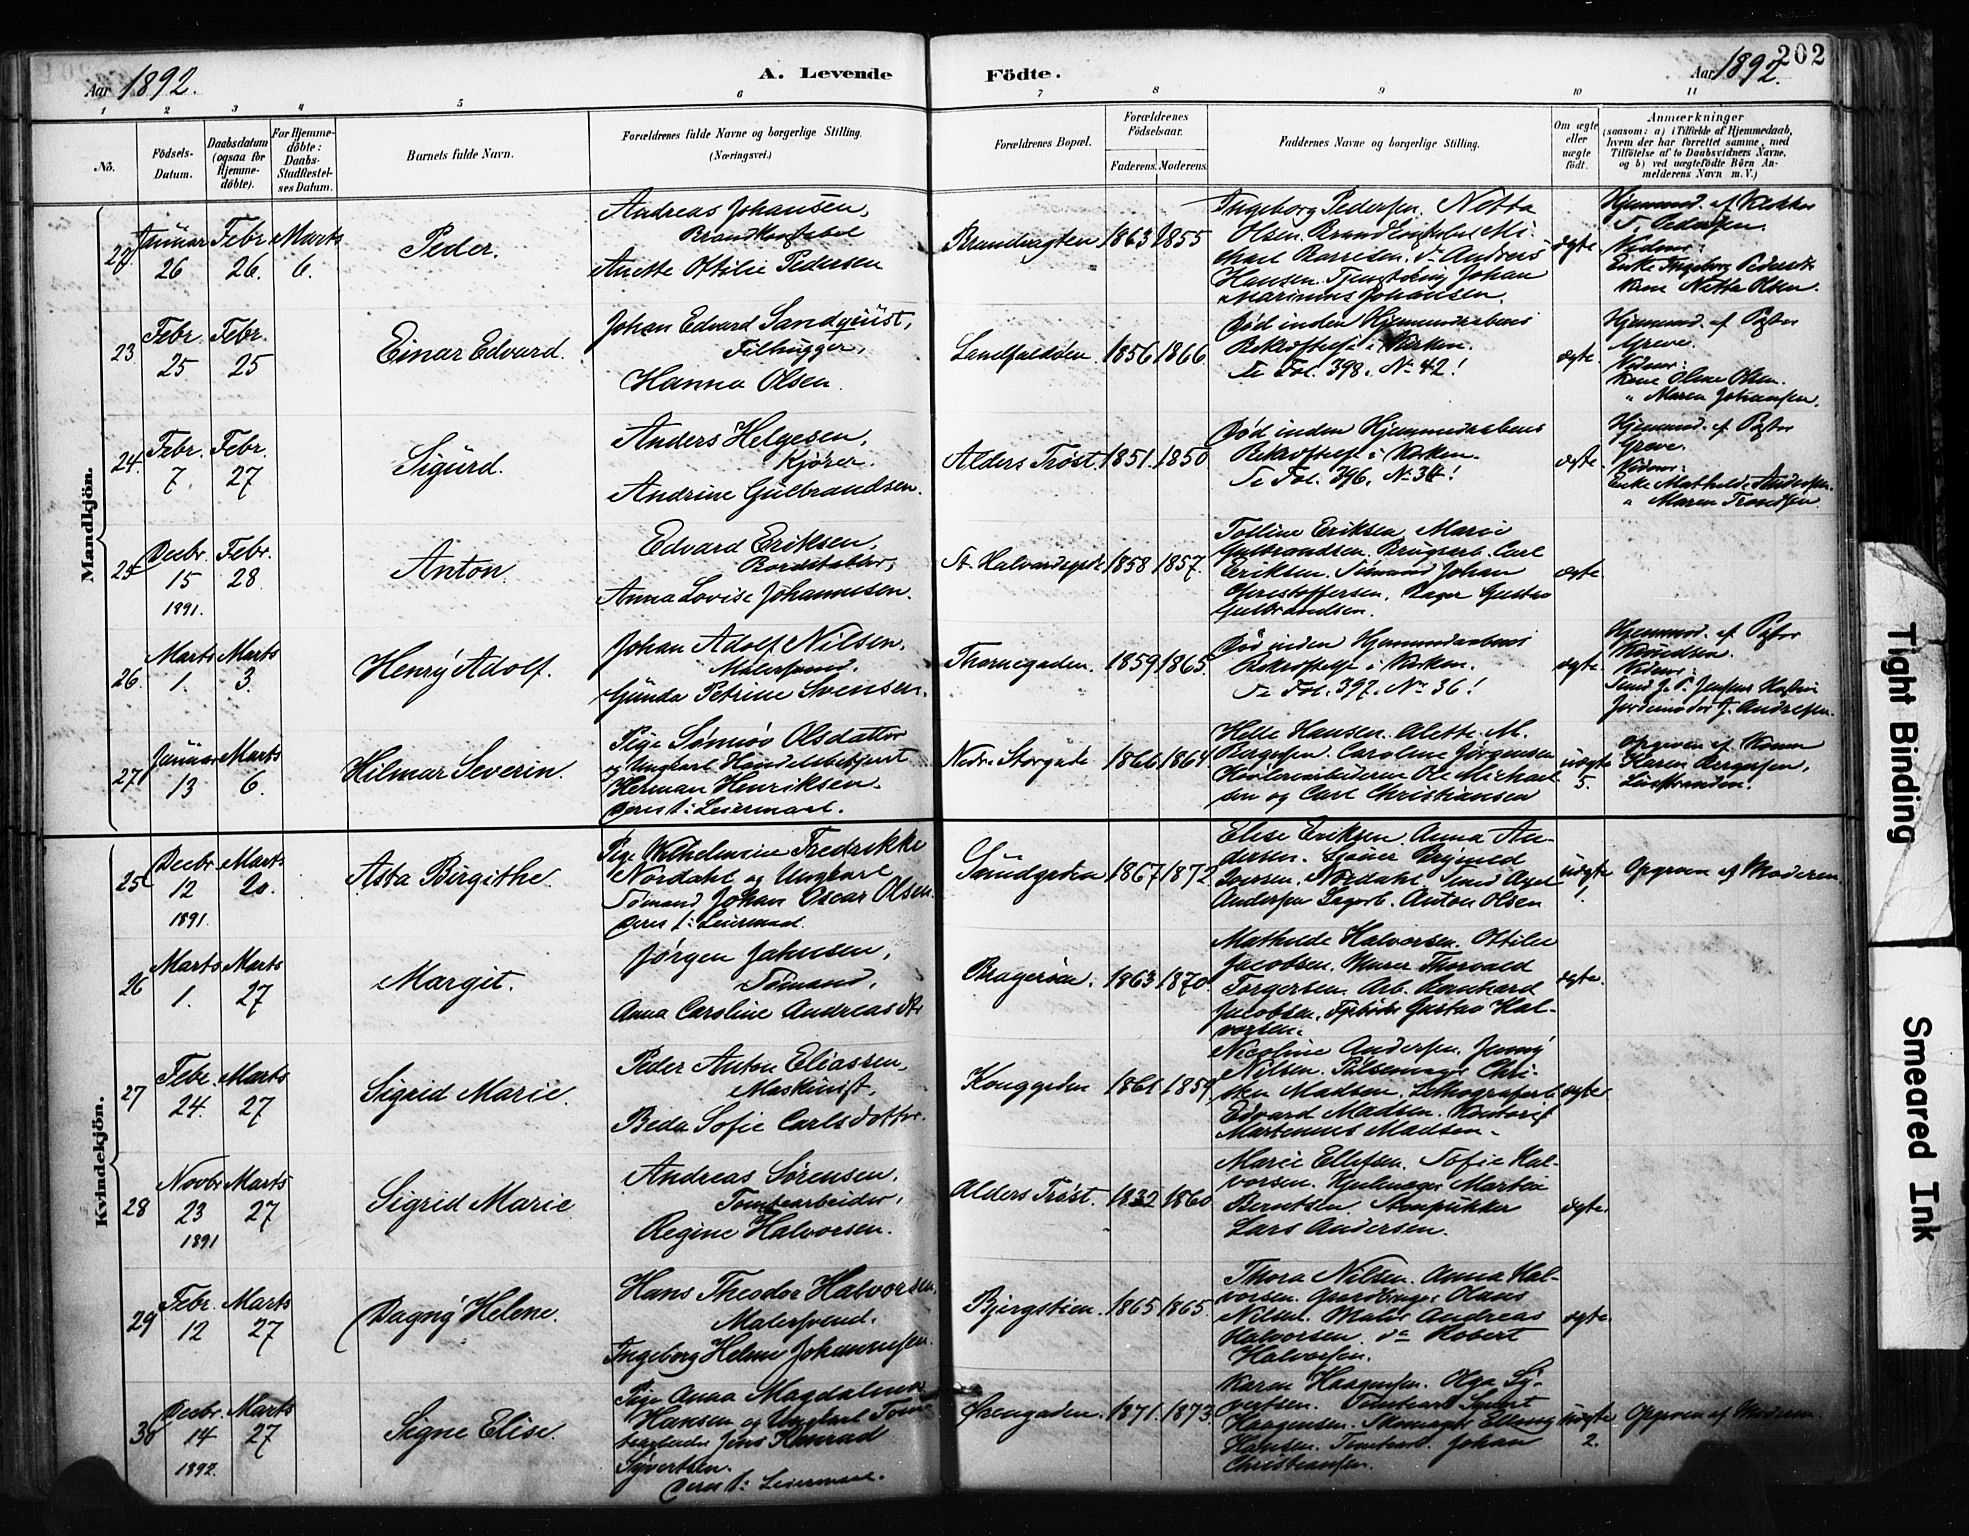 Aar 1892.
A. Levende Födte.
Aar 1892.
202
1 2 3 4 5 6 7 8 9 10 11
No.
Födsels-Datum.
Daabsdatum (ogsaa for Hjemmedöbte).
For Hjemmedöbte: Daabs-Stadfæstelses Datum.
Barnets fulde Navn.
Forældrenes fulde Navne og borgerlige Stilling.
(Næringsvei.)
Forældrenes Bopæl.
Forældrenes Födselsaar.
Faderens. Moderens.
Faddernes Navne og borgerlige Stilling.
Om ægte eller uægte født.
Anmærkninger
(saasom: a) i Tilfælde af Hjemmedaab, hvem der har forrettet samme, med Tilføielse af to Daabsvidners Navne, og b) ved uægtefødte Börn Anmelderens Navn m. V.)
Mandkjön.
22. Januar 26 Febr. 26. Marts 6.
Peder.
Andreas Johansen,
Brandkonstabel
Anette Ottilie Pedersen
Brandvagten 1863 1855
Ingeborg Pedersen. Netta
Olsen. Brandkonstabel Mi-
Hansen. Johan
Marinius Johansen.
ægte.
Hjemmd. af
T. Pedersen.
Vidner:
Enke Ingeborg Pedersen
Kone Netta Olsen.
23 Febr. 25 Febr. 25
Einar Edvard.
Johan Edvard Sandqvist,
Filhugger,
Hanna Olsen.
Landfaldöen. 1856 1866.
Död inden Hjemmedaabens
Bekræftelse i Kirken.
Se Fol. 398. No 42!
ægte.
Hjemmd. af Pastor
Greve.
Vidner:
Kone Oline Olsen.
" Maren Johansen.
24. Febr. 7. Febr. 27
Sigurd.
Anders Helgesen,
Kjører.
Andrine Gulbrandsen.
Alders Trøst. 1851. 1850
Død inden Hjemmedaabens
Bekræftelse i Kirken.
Se Fol. 396. No 34!
ægte.
Hjemmd. af Pastor
Greve.
Vidner:
Enke Mathilde Andersen.
" Maren
25 Decbr. 15 1891. Febr. 28
Anton.
Edvard Eriksen,
Bordstabler,
Anna Lovise Johannesen.
St. Halvardsgade 1858 1857.
Eriksen. Marie
Gulbrandsen. Brugsarb. Carl
Eriksen. Sömand Johan
Christoffersen. Bager Gustav
Gulbrandsen.
ægte.
26. Marts 1. Marts 3.
Henry Adolf.
Johan Adolf Nilsen,
Malersvend.
Gunda Petrine Svensen.
Thornegaden. 1859 1865.
Død inden Hjemmedaabens
Bekræftelse i Kirken.
Se Fol. 397. No 36!
ægte.
Hjemmd. af Pastor
Vidner:
Jordemoder J. Andresen.
27. Januar 13 Marts 6.
Hilmar Severin.
Pige Olsdatter
og Ungkarl Handelsbetjent
Herman Henriksen.
Deres 1: Leiermaal.
Nedre Storgade 1866 1864
Helle Hansen. Alette M.
Bergersen. Caroline Jørgensen
Ole Michael
sen og Carl Christiansen
uægte 5.
Opgiven af Kone
Karen Bergersen,
Kvindekjön.
25 Decbr. 12 1891. Marts 20.
Asta Birgithe.
Pige Wilhelmine Fredrikke
Nordahl og Ungkarl
Sömand Johan Oscar Olsen.
Deres 1: Leiermaal
Sundgaden 1867 1872
Elise Eriksen. Anna An-
dersen.
Iversen. Nordahl Axel
Andersen Anton Olsen
uægte 1.
Opgiven af Moderen.
26 Marts 1. Marts 27
Margit.
Jørgen Jahnsen,
Sömand,
Anna Caroline Andreasdtr
Bragerøen. 1863 1870.
Mathilde Halvorsen. Ottilie
Jacobsen. Murer Thorvald
Torgersen. Arb. Bernhard
Jacobsen. Gustav Hal-
vorsen.
ægte.
27 Febr. 24. Marts 27
Sigrid Marie.
Peder Anton Eliassen,
Maskinist,
Beda Sofie Carlsdotter.
Konggaden 1861 1859.
Nicoline Andersen. Jenny
Nilsen. Pölsemager Chri-
sten Madsen. Lithografarb.
Edvard Madsen. Kontorist
Martinius Madsen.
ægte
28 Novbr. 23 1891 Marts 27
Sigrid Marie
Andreas Sørensen,
Tomtearbeider,
Regine Halvorsen.
Alders Trøst. 1832 1860
Marie Ellefsen. Sofie Hal-
vorsen. Martin
Berntsen. Stenpukker
Lars Andersen.
ægte.
29 Febr. 12 Marts 27
Dagny Helene.
Hans Theodor Halvorsen,
Malersvend.
Ingeborg Helene Johannessen.
Bjergstien. 1865 1865.
Thora Nilsen. Anna Hal-
vorsen. Olaus
Nilsen. Maler Andreas
Halvorsen. do Robert
Halvorsen.
ægte.
30 Decbr. 14 1892. Marts 27
Signe Elise.
Pige Anna Magdalena
Hansen og Ungkarl Tomte-
arbeider Jens Konrad
Syvertsen.
Deres 1: Leiermaal.
Örengaden. 1871. 1873.
Karen Haagensen. Olga Sy-
vertsen.
Haagensen. Skomager Elling
Hansen. Tomtearb. Johan
Christiansen.
uægte 2.
Opgiven af Moderen.
Tight Binding
Smeared Ink